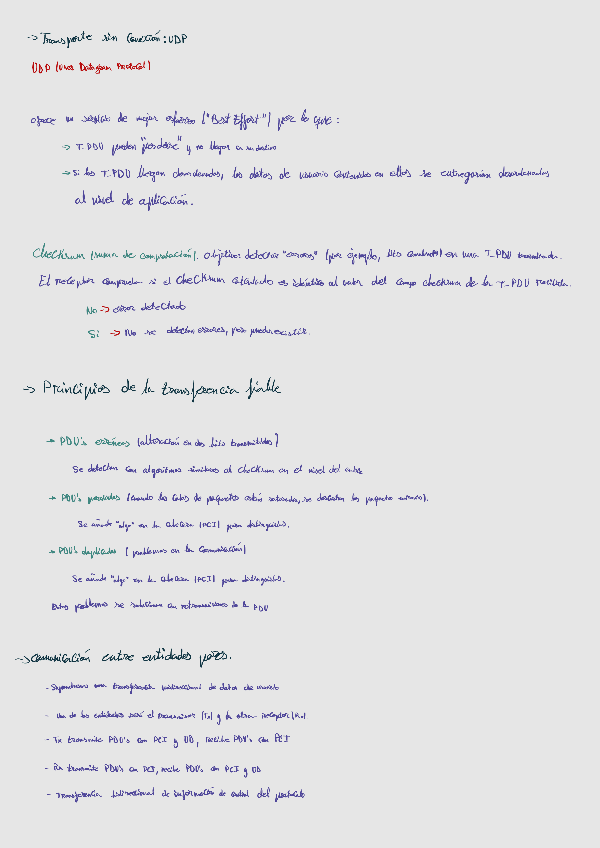 -> Transporte sin Conexión: UDP
UDP (User Datagram Protocol)
ofrece un servicio de mejor esfuerzo ("Best Effort") por lo que:
-> T_PDU pueden "perderse" y no llegar a su destino
-> Si las T_PDU llegan desordenadas, los datos de usuario contenidos en ellos se entregarían desordenados
al nivel de aplicación.
Checksum (suma de comprobación). Objetivo: detectar "errores" (por ejemplo, bits cambiados) en una T_PDU transmitida.
El receptor comprueba si el checksum calculado es idéntico al valor del campo checksum de la T_PDU recibida.
No -> error detectado
Si -> No se detectan errores, pero pueden existir.
-> Principios de la transferencia fiable
-> PDU's erróneas (alteración en los bits transmitidos)
Se detectan con algoritmos similares al checksum en el nivel de enlace
-> PDU's perdidas (cuando las colas de paquetes están saturadas, se descartan los paquetes entrantes).
Se añade "algo" en la cabecera (PCI) para distinguirlos.
-> PDU's duplicadas (problemas en la comunicación)
Se añade "algo" en la cabecera (PCI) para distinguirlos.
Estos problemas se solucionan con retransmisiones de la PDU
-> Comunicación entre entidades pares.
- Supondremos una transferencia unidireccional de datos de usuario
- Una de las entidades será el transmisor (Tx) y la otra receptor (Rx)
- Tx transmite PDU's con PCI y UD, recibe PDU's con PCI
- Rx transmite PDU's con PCI, recibe PDU's con PCI y UD
- Transferencia bidireccional de información de control del protocolo